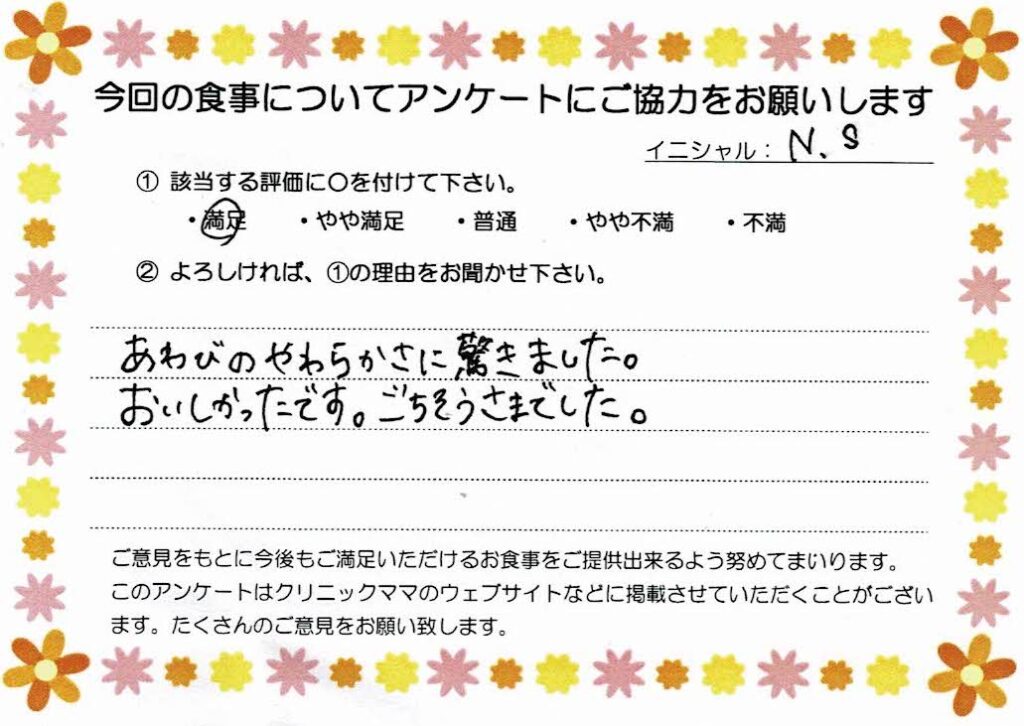 今回の食事についてアンケートにご協力をお願いします
イニシャル： N.S
① 該当する評価に〇を付けて下さい。
・満足 ・やや満足 ・普通 ・やや不満 ・不満
② よろしければ、①の理由をお聞かせ下さい。
あわびのやわらかさに驚きました。
おいしかったです。ごちそうさまでした。
ご意見をもとに今後もご満足いただけるお食事をご提供出来るよう努めてまいります。
このアンケートはクリニックママのウェブサイトなどに掲載させていただくことがござい
ます。たくさんのご意見をお願い致します。